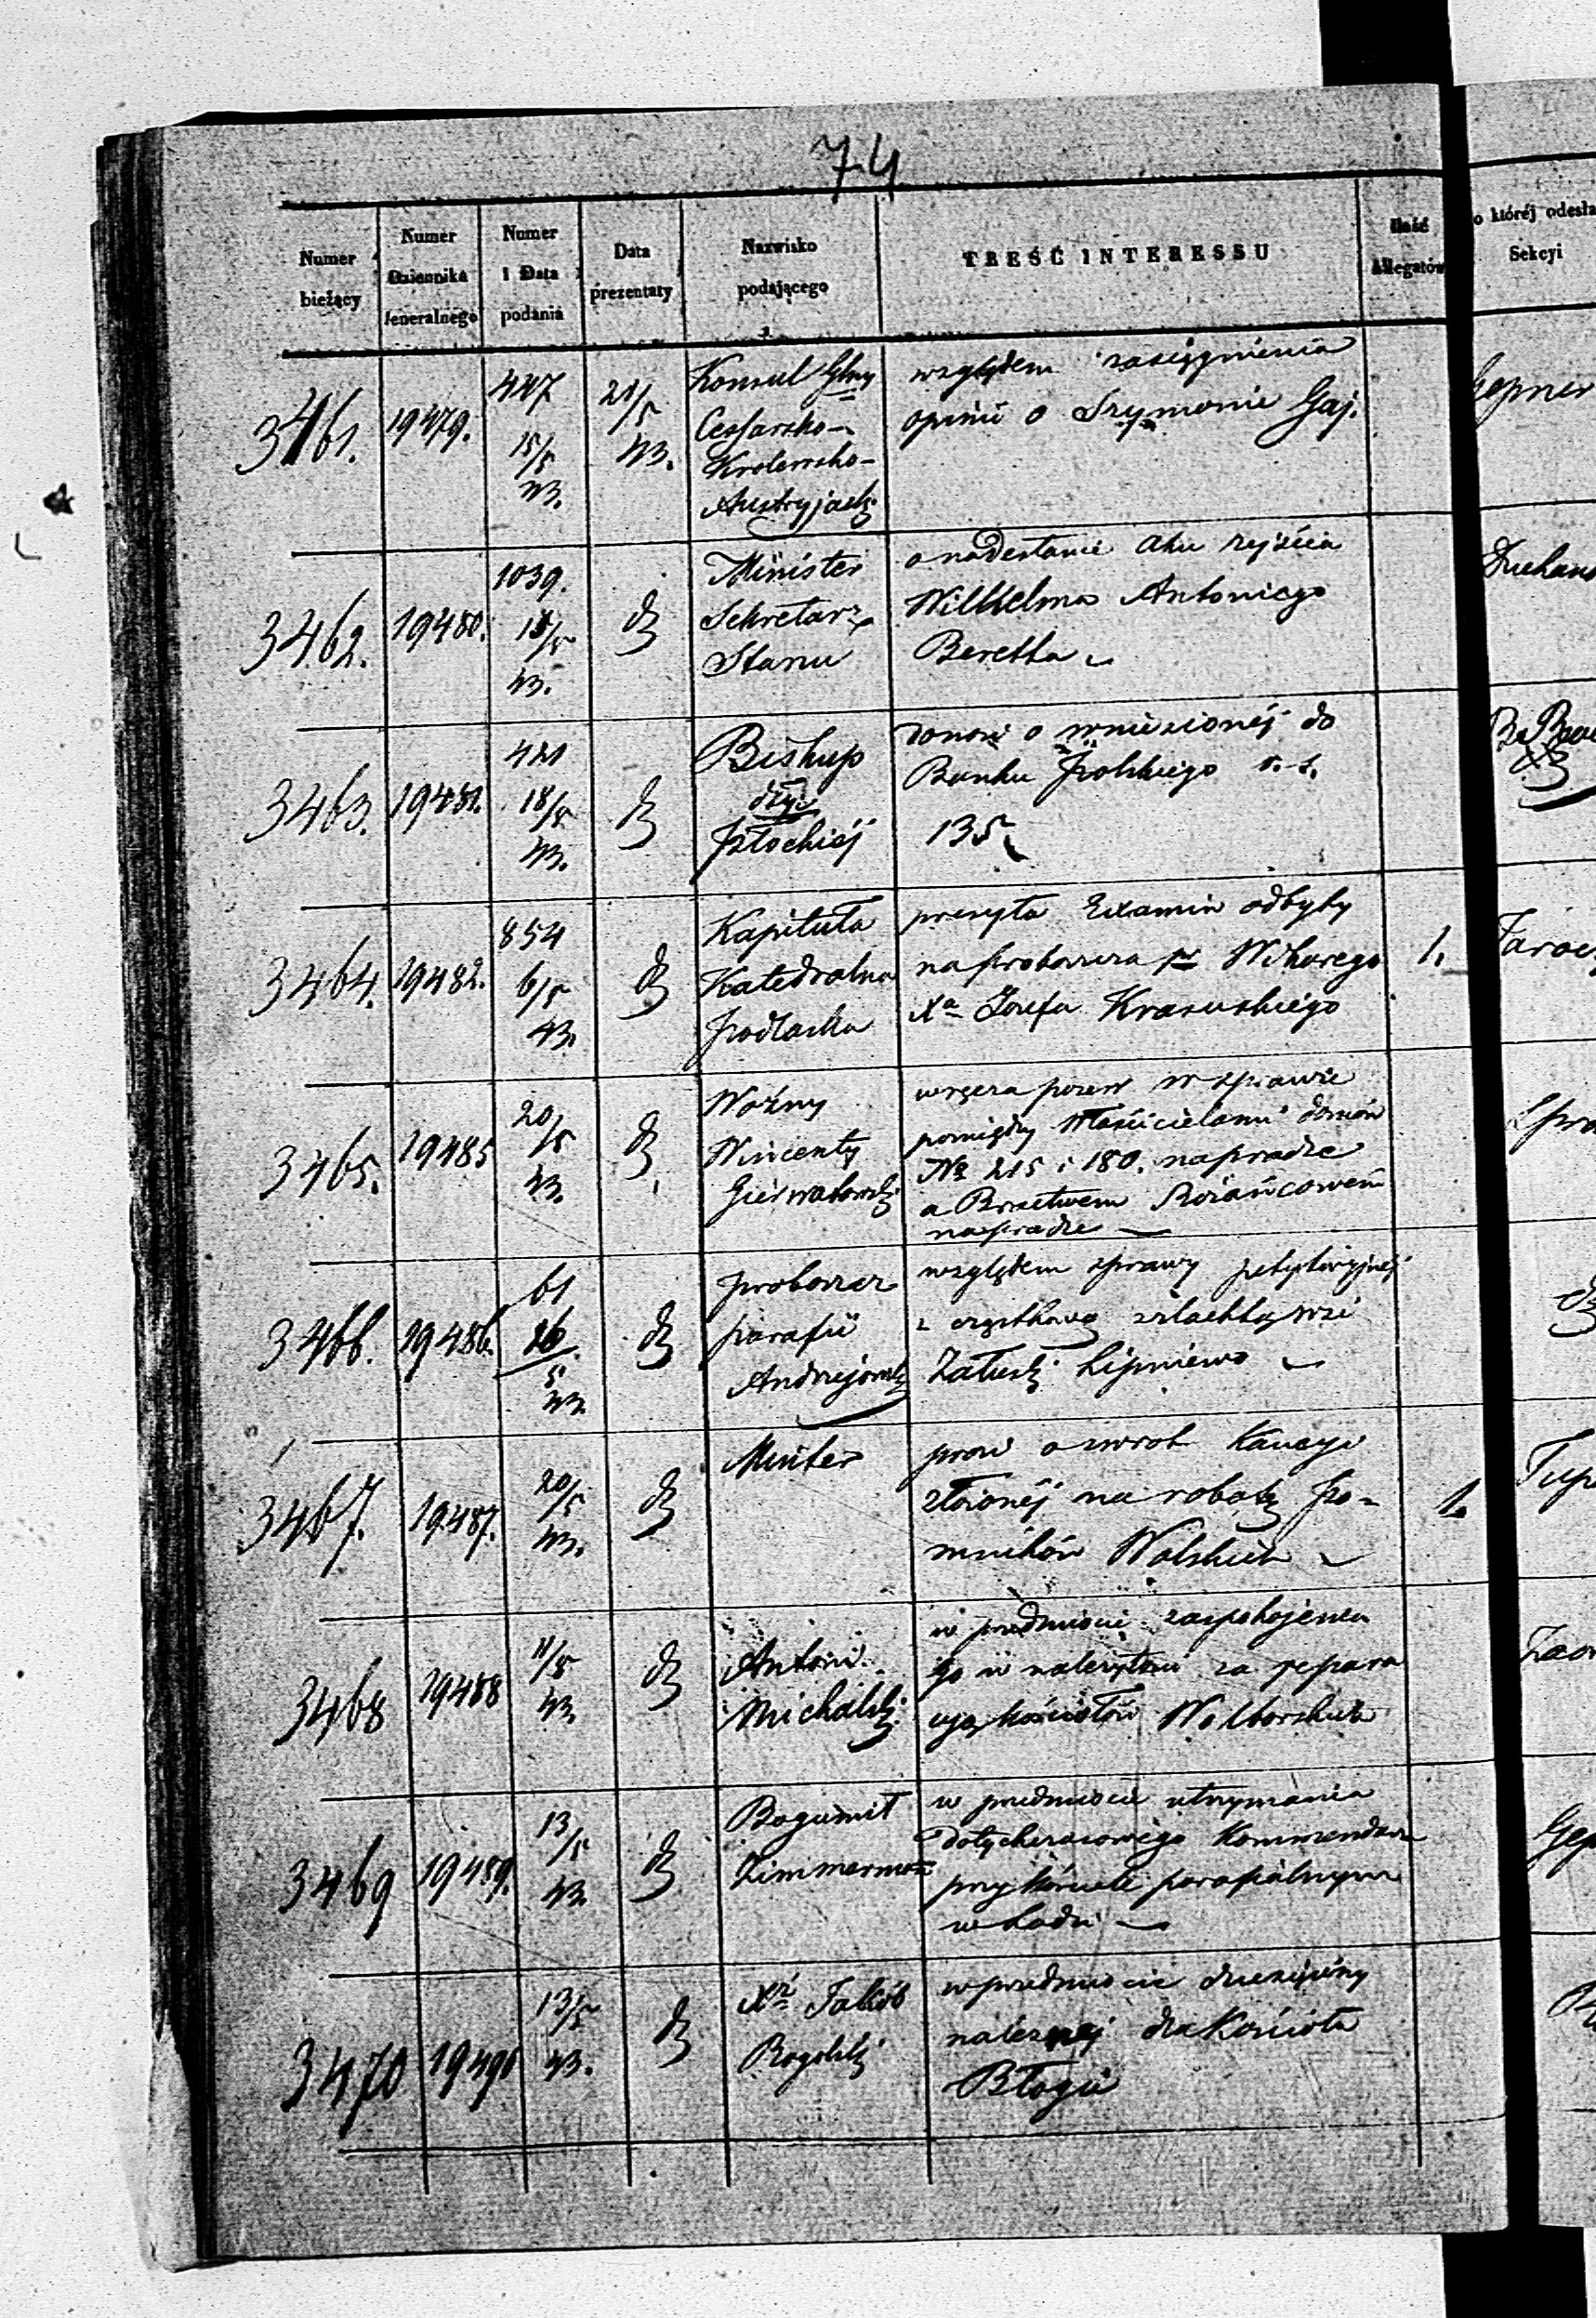 74
Numer bieżący
Numer Dziennika Jeneralnego
Numer i Data podania
Data prezentaty
Nazwisko podającego
TREŚĆ INTERESSU
Ilość Allegatów
o któréj odesła
Sekcyi
3461.
19479.
447
15/5
43.
21/5
43.
Konsul Glny
Cessarsko-
Krolewsko-
Austryjacki
względem zasięgnienia
opinii o Szymonie Gaj.
Hepner
3462.
19480.
1039.
18/5
43.
d
Minister
Sekretarz
Stanu
o nadesłanie aktu zejścia
Wilhelma Antoniego
Beretta
3463.
19481.
421
18/5
43.
d
Biskup
dyi
Płockiéj
donosi o wniesionéj do
Banku Polskiego r. s.
135
3464.
19482.
854
6/5
43.
d
Kapituła
Katedralna
Podlaska
przesyła Examin odbyty
na proboszcza pr
Xa Jozefa Krasuskiégo
1.
3465.
19485
20/5
43.
d
Woźny
Wincenty
Gierwatowski
wręcza pozew w sprawie
pomiędzy Właścicielami domów
No 215 i 180. na pradze
a Bractwem Różańcowém
na pradze
3466.
19486.
61
26
5
43
d
proboszcz
parafii
Andrzejowski
względem sprawy petytoryjnéj
z cząstkową szlachtą wsi
Załuski Lipniewo
3467.
19487.
20/5
43.
d
Minter
prosi o zwrot Kaucyi
złożonéj na robotę Po-
mników Wolskich
1.
3468
19488
11/5
43.
d
Antoni
Michalski
w przedmiocie zaspokojenia
go w należytości za repara
cyą kościołów Wolborskich
3469
19489.
13/5
43.
d
Bogumił
Zimmerman
w przedmiocie utrzymania
dotychczasowégo Kommendarza
przy kościele parafialnym
w Łodzi
3470
19490
13/5
43.
d
Xdz Jakób
Rogolski
w przedmiocie dziesięciny
należnéj dla Kościoła
Błogie